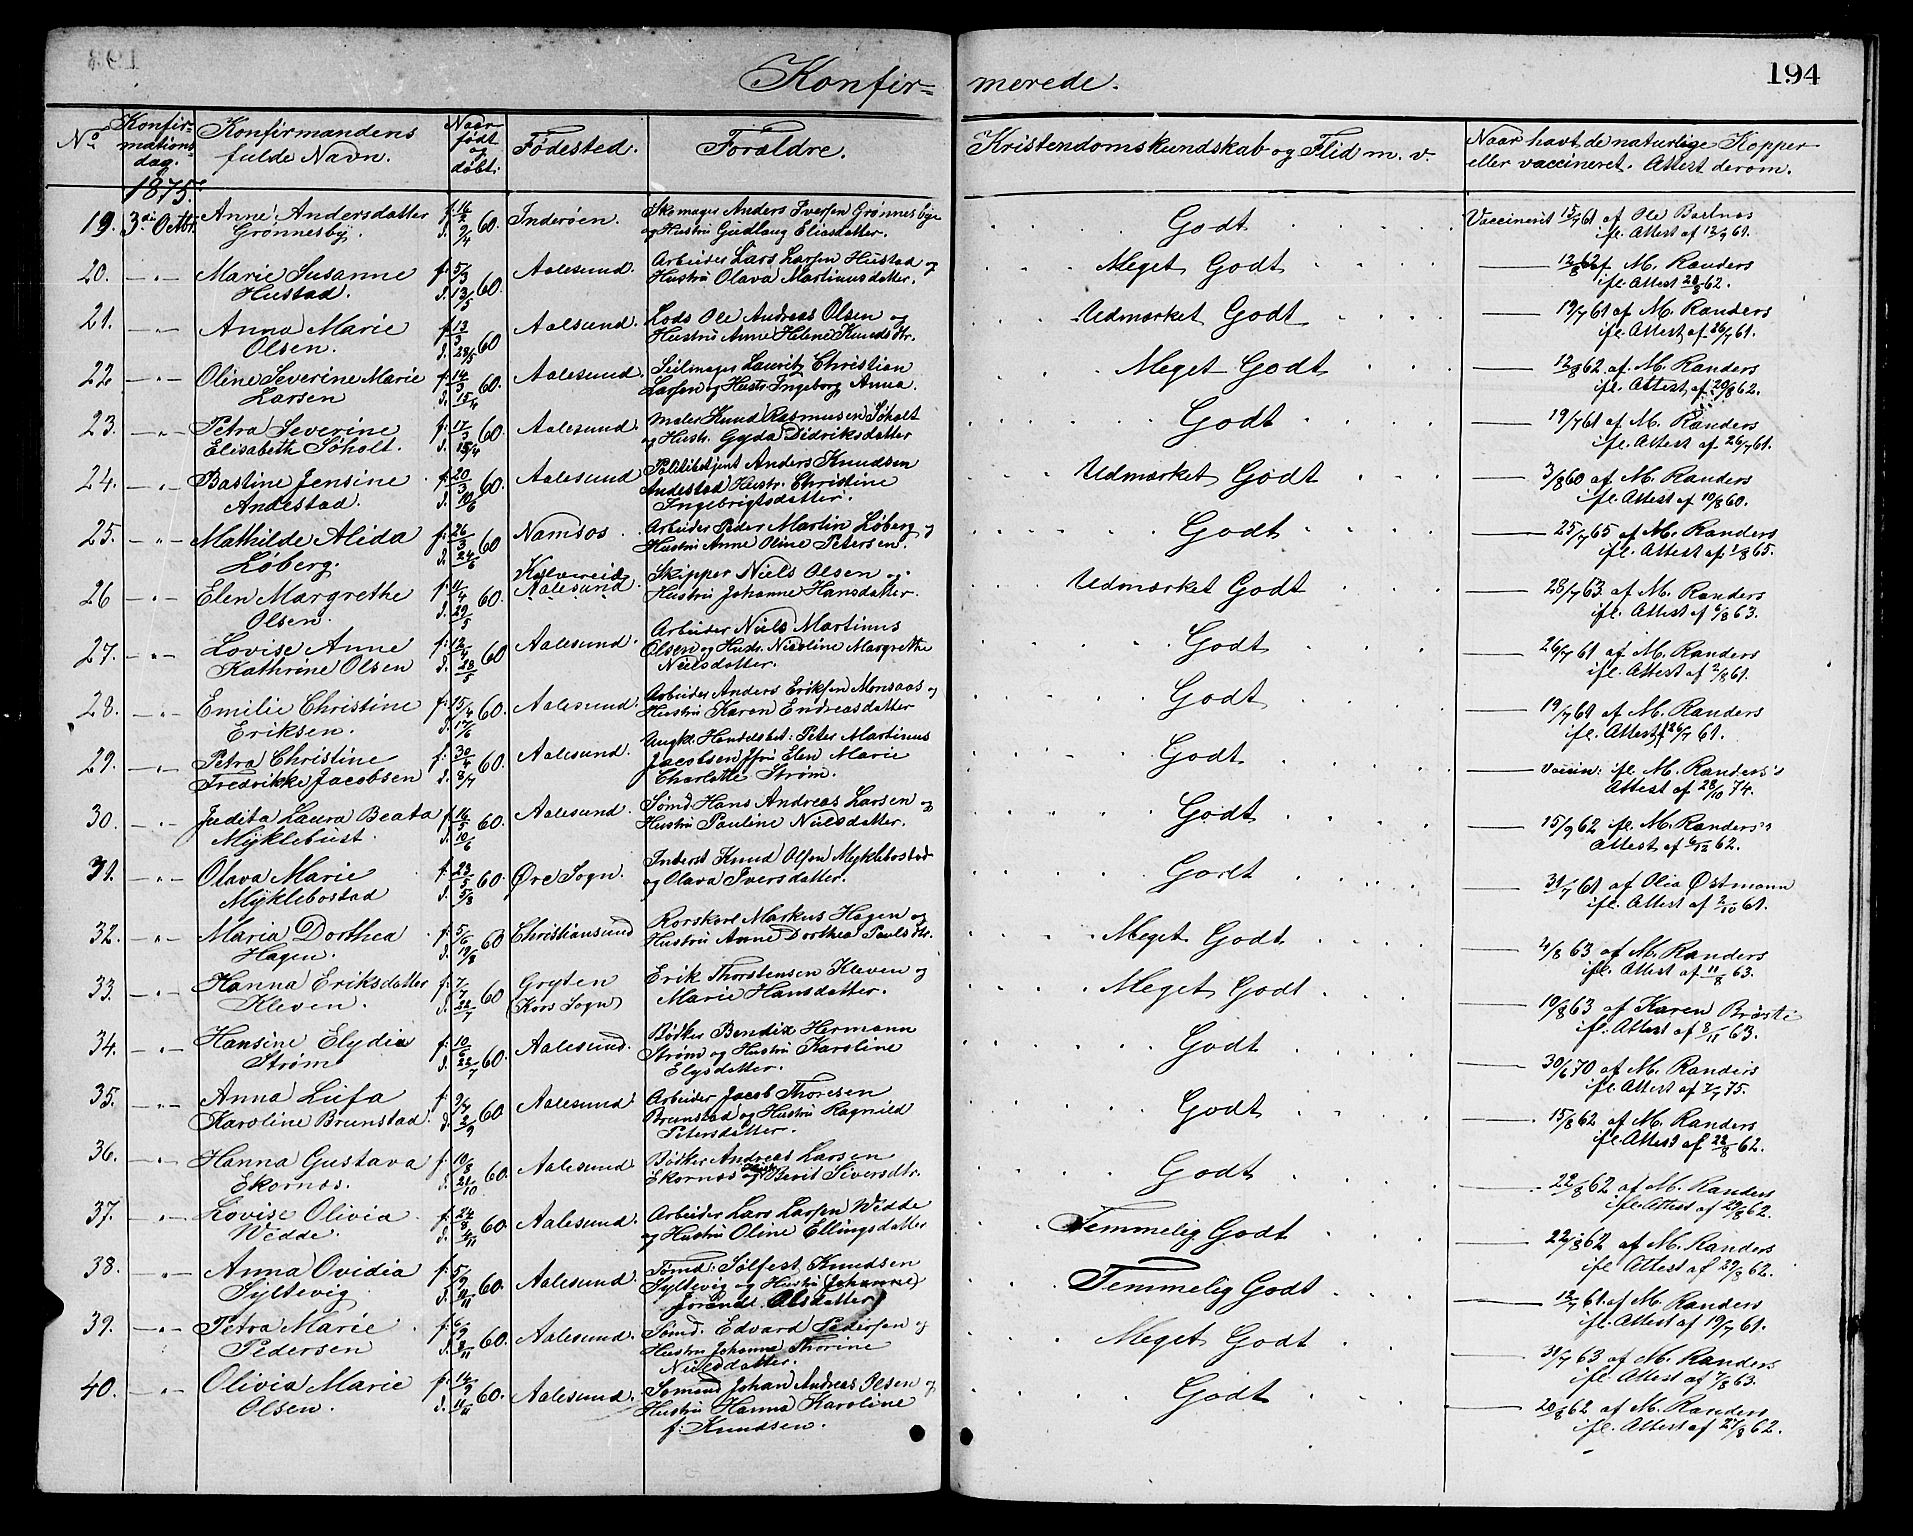 Konfir= merede. 194
No Konfir=mations dag. Konfirmandens fulde Navn. Naar født og døbt. Fødested. Forældre. Kristendomskundskab og Flid m. v. Naar havt de naturlige Kopper eller vaccineret. Attest derom.
1875.
19. 3die Octbr. Anne Andersdatter f. 16/2 60. Inderøen. Skomager Anders Iversen Grønnesbye Godt Vaccineret 15/7 61 af Ole Bartnæs
Grønnesby. d. 9/4 og Hustru Gudlaug Eliasdatter. ifl. Attest af 12/9 61.
20. -"- Marie Susanne f. 5/3 60. Aalesund. Arbeider Lars Larsen Hustad og Meget Godt 12/8 62 af M. Randers
Hustad. d. 13/5 Hustru Olava Martinusdatter. ifl. Attest 20/8 62.
21. -"- Anna Marie f. 13/3 60 Aalesund. Lods Ole Andreas Olsen og Udmærket Godt 19/7 61 af M. Randers
Olsen. d. 28/5 Hustru Anne Helene Knudsdtr. ifl. Attest af 26/7 61.
22 -"- Oline Severine Marie f. 14/3 60. Aalesund. Seilmager Lauritz Christian Meget Godt 12/8 62 af M. Randers
Larsen d. 15/4 Larsen og Hustr. Ingeborg Anna. ifl. Attest af 20/8 62.
23. -"- Petra Severine f. 17/3 60. Aalesund. Maler Knud Rasmusen Søholt Godt 19/7 61 af M. Randers
Elisabeth Søholt. d. 15/4 og Hustr. Gyda Didriksdatter ifl. Attest af 26/7 61.
24. -"- Bastine Jensine f. 20/3 60. Aalesund Politibetjent Anders Knudsen Udmærket Godt 3/8 60 af M. Randers
Andestad. d. 10/6 Andestad Hustr. Christine ifl. Attest af 10/8 60.
Ingebrigtsdatter.
25. -"- Mathilde Alida f. 26/3 60 Namsos. Arbeider Peder Martin Løberg og Godt 25/7 65 af M. Randers
Løberg. d. 24/6 Hustru Anne Oline Petersen. ifl. Attest af 1/8 65.
26 -"- Elen Margrethe f. 11/4 60. Kolvereid Aalesund. Skipper Niels Olsen og Udmærket Godt 28/7 63 af M. Randers
Olsen. d. 29/5 Hustru Johanne Hansdatter. ifl. Attest af 6/8 63.
27. -"- Lovise Anne f. 12/4 60 Aalesund. Arbeider Niels Martinus Godt 26/7 61 af M. Randers
Kathrine Olsen d. 28/5 Olsen og Hustr. Nicoline Margrethe ifl. Attest af 2/8 61.
Nielsdatter.
28. -"- Emilie Christine f. 15/4 60. Aalesund. Arbeider Anders Eriksen Monsaas og Godt 19/7 61 af M. Randers
Eriksen. d. 17/6 Hustru Karen Endreasdatter ifl. Attest af 26/7 61.
29. -"- Petra Christine f. 30/4 60. Aalesund. Ungk. Handelsbet: Peter Martinus Godt Vaccin: ifl. M. Randers's
Fredrikke Jacobsen d. 8/7 Jacobsen, Jfr: Elen Marie Attest af 28/10 74.
Charlotte Strøm.
30. -"- Judita Laura Beata f. 16/5 60. Aalesund. Sømd Hans Andreas Larsen og Godt 15/9 62 ifl. M. Randers's
Myklebust. d. 10/6 Hustru Pauline Nielsdatter. Attest af 6/12 62.
31. -"- Olava Marie f. 23/5 60. Øre Sogn. Inderst Knud Olsen Myklebostad Godt 31/7 61 af Olia Østmann
Myklebostad d. 5/8 og Olava Iversdatter. ifl. Attest af 2/10 61.
32. -"- Maria Dorthea f. 5/6 60 Christiansund Rorskarl Markus Hagen og Meget Godt 4/8 63 af M. Randers
Hagen. d. 19/8 Hustru Anne Dorthea Paulsdtr. ifl. Attest af 11/8 63.
33. -"- Hanna Eriksdatter f. 7/7 60 Gryten Erik Thorstensen Kleven og Meget Godt 10/8 63 af Karen Brøste
Kleven. d. 22/7 (Kors Sogn) Marie Hansdatter. ifl. Attest af 3/11 63.
34. -"- Hansine Elydia f. 10/6 60. Aalesund. Bødker Bendix Hermann Godt 30/6 70 af M. Randers
Strøm d. 22/7 Strøm og Hustru Karoline ifl. Attest af 7/7 75.
Elysdatter.
35. -"- Anna Lufa f. 9/7 60 Aalesund. Arbeider Jacob Thoresen Godt 15/8 62 af M. Randers
Karoline Brunstad. d. 2/9 Brunstad og Hustru Ragnild ifl. Attest af 22/8 62.
Petersdatter.
36. -"- Hanna Gustava f. 10/8 60. Aalesund Bødker Andreas Larsen Godt 22/8 62 af M. Randers
Ekornæs. d. 21/10 Ekornæs og Hustr. Berit Siversdtr. ifl. Attest af 29/8 62.
37. -"- Lovise Olivia f. 24/8 60. Aalesund. Arbeider Lars Larsen Wedde Temmelig Godt 22/8 62 af M. Randers
Wedde. d. 4/11 og Hustru Oline Ellingsdatter ifl. Attest af 29/8 62.
38. -"- Anna Ovidia f. 5/9 60. Aalesund. Sømd: Sølfest Knudsen Temmelig Godt 12/7 61 af M. Randers
Syltevig d. 11/11 Syltevig og Hustru Johanne ifl. Attest af 19/7 61.
Jorande Olsdatter
39. -"- Petra Marie f. 6/9 60. Aalesund. Sømd. Edvard Pedersen og Meget Godt 31/7 63 af M. Randers
Pedersen d. 2/11 Hustru Johanna Thorine ifl. Attest af 7/8 63.
Nielsdatter.
40. -"- Olivia Marie f. 14/9 60. Aalesund. Sømand Johan Andreas Olsen og Godt 20/8 62 af M. Randers
Olsen. d. 11/11 Hustru Hanna Karoline ifl. Attest af 27/8 62.
f. Knudsen.